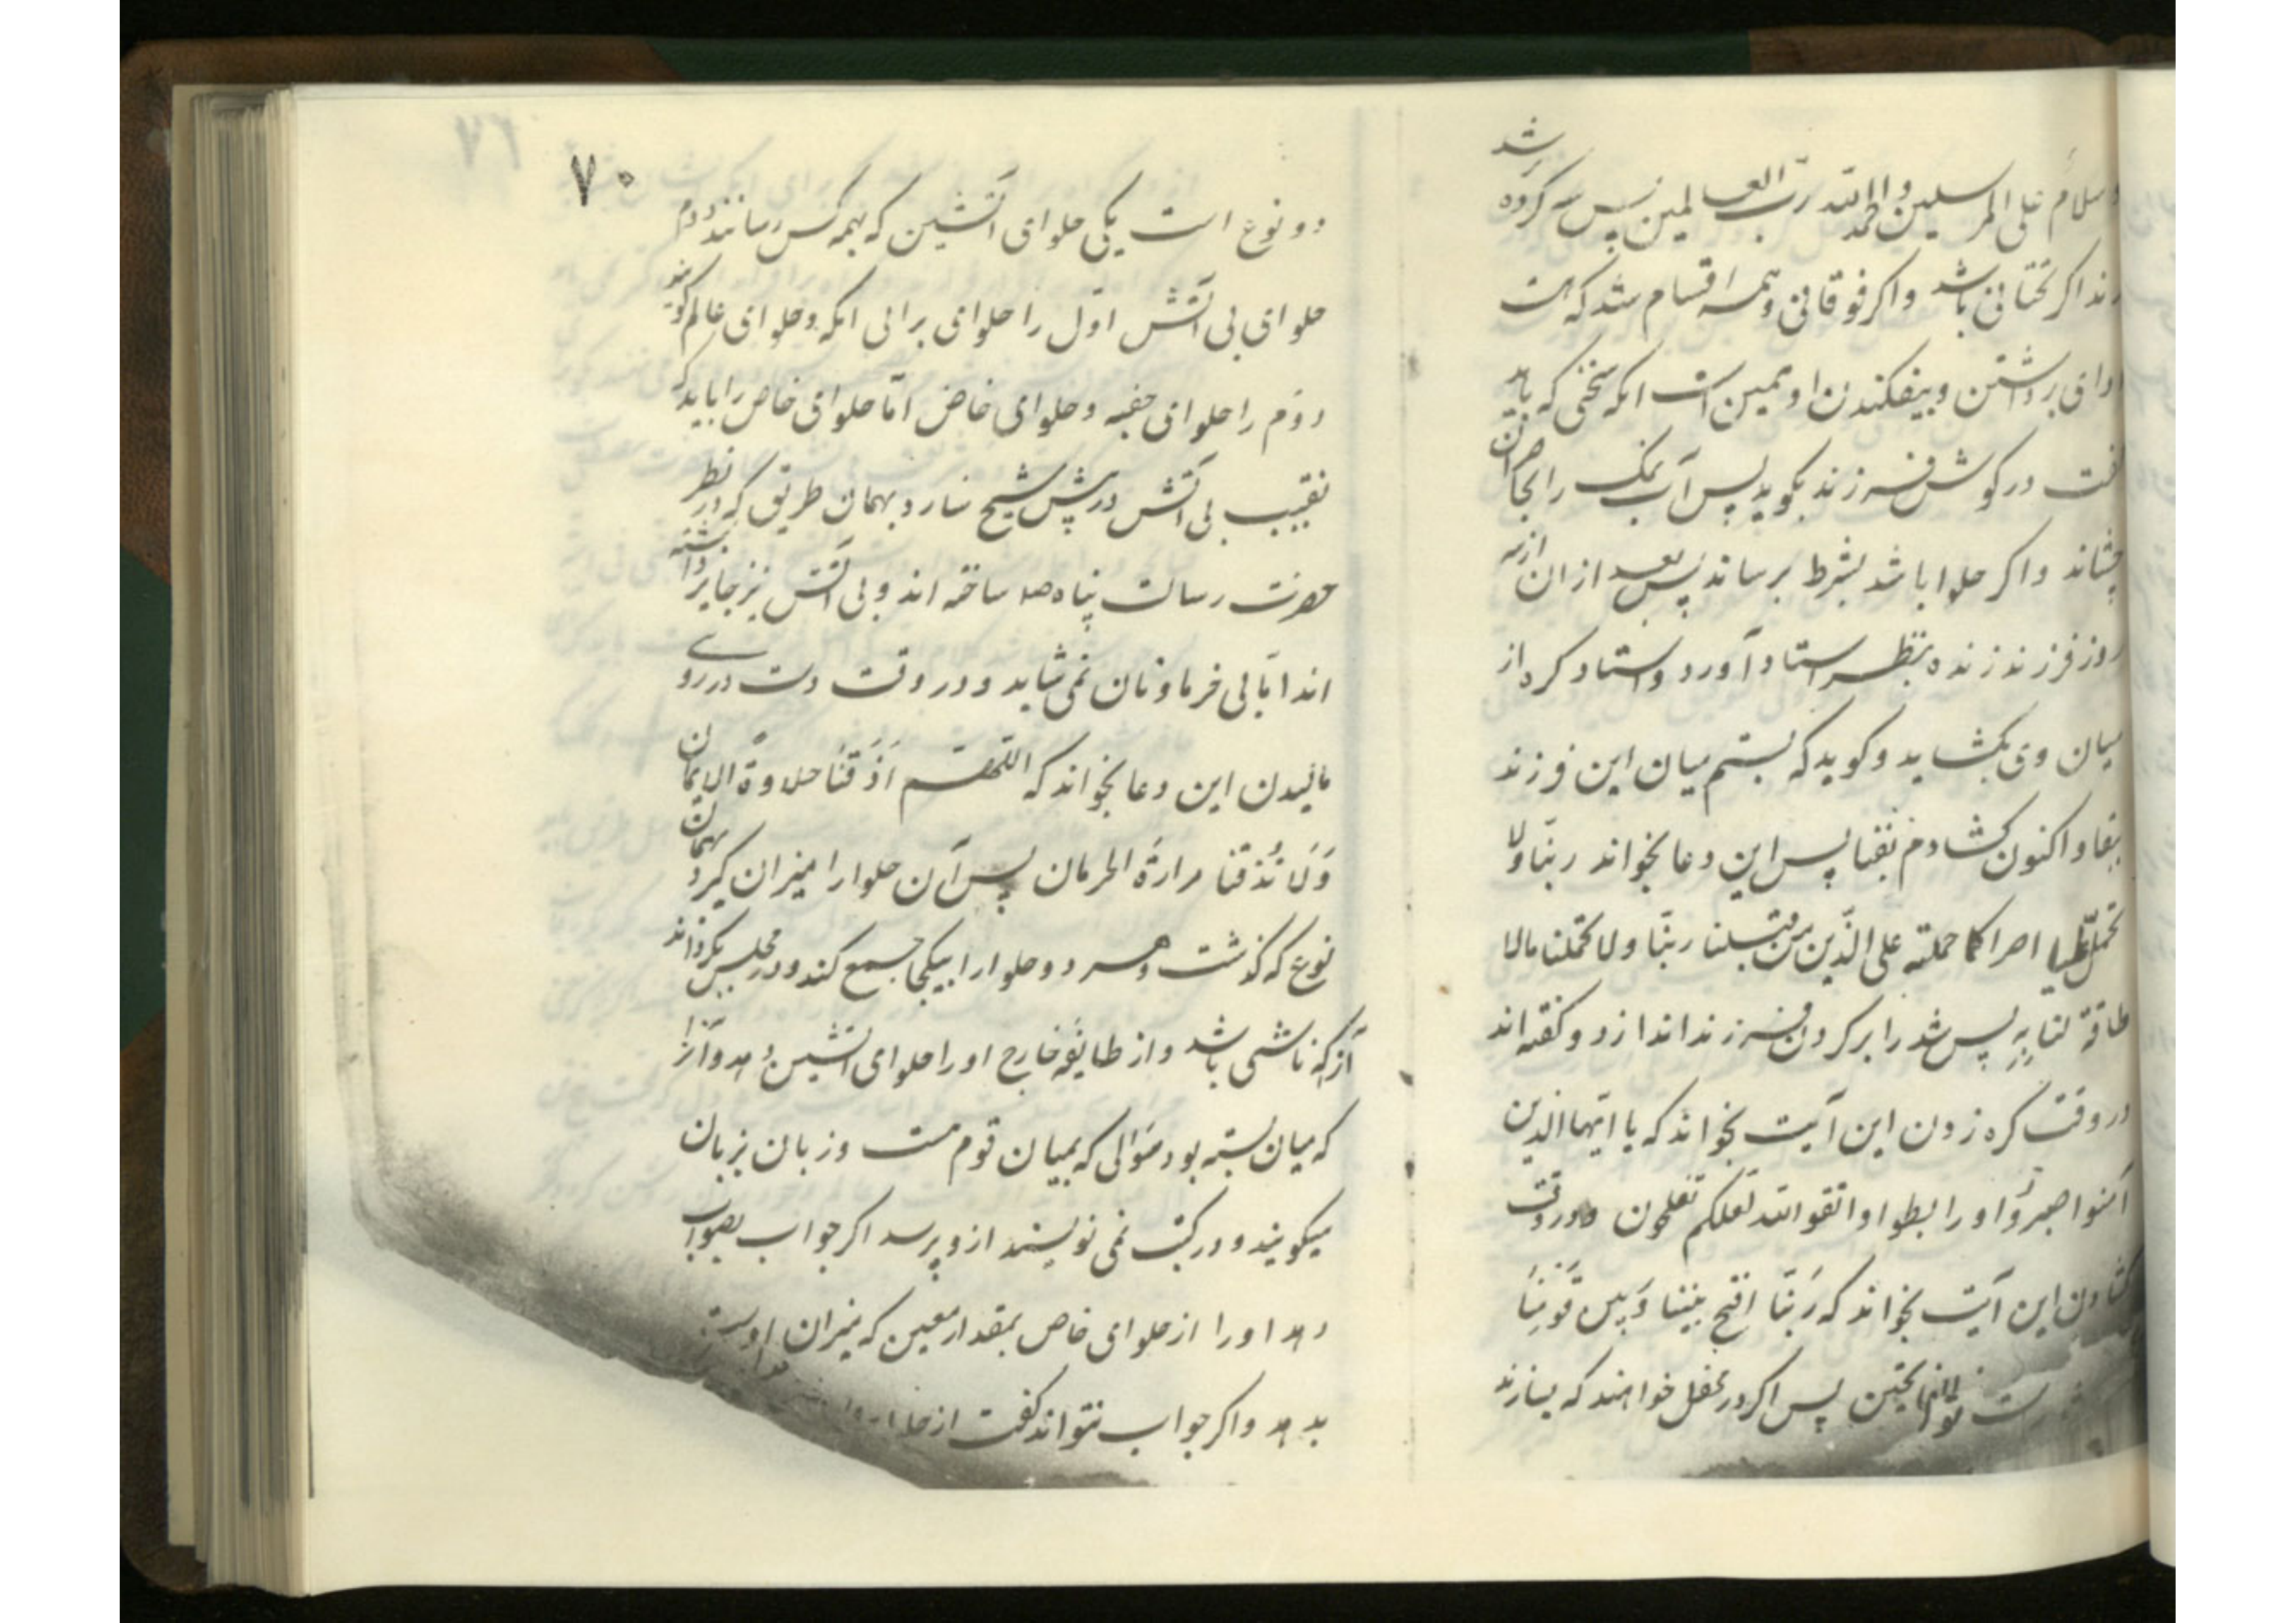 شد
وسلام علی المرسلین والحمدلله رب العالمین پس سه کروه
زند اکر تحتانی باشد واکر فوقانی وهمه اقسام شد که هست
ادای برداشتن وبیفکندن او همین است انکه سخنی که باید
کفت در کوش فرزند بکوید پس آب نمک را بحاضران
چشاند واکر حلوا باشد بشرط برساند پس بعد ازان از سه
روز فرزند زنده بنظر استاد آورد واستاد کره از
میان وی بکشاید وکوید که بستم میان این فرزند
ببقا واکنون کشادم بفنا پس این دعا بخواند ربنا ولا
تحمل علینا اصرا کما حملته علی الذین من قبلنا ربنا ولا تحملنا مالا
طاقة لنا به پس شد را بر کردن فرزند اندازد وکفته اند
در وقت کره زدن این آیت بخواند که یا ایها الذین
آمنوا صبروا و رابطوا واتقوا الله لعلکم تفلحون ودر وقت
کشادن این آیت بخواند که ربنا افتح بیننا وبین قومنا
پس اکر در محفل خواهند که بسازند
۷۰
دو نوع است یکی حلوای آتشین که بهمه کس رسانند دوم
حلوای بی آتش اول را حلوای برانی انکه وحلوای عالم کویند
دوم را حلوای خفیه وحلوای خاص اما حلوای خاص را باید که
نقیب بی آتش در پیش شیخ سازد بهمان طریق که در نظر
حضرت رسالت پناه صلا ساخته اند وبی آتش نیز جایز داشته
اند اما بی فرما ونان نمی شاید ودر وقت دست در روی
مالیدن این دعا بخواند که اللهم اذقنا حلاوة الایمان
ولا تذقنا مرارة الحرمان پس آن حلوا را میزان کیرد بهمان
نوع که کذشت وهر دو حلوا را بیکجا جمع کند ودر مجلس بکرداند
آنرا که ناشی باشد واز طایفه خارج او را حلوای آتشین دهد وآنرا
که میان بسته بود سؤالی که بمیان قوم هست وزبان بزبان
میکویند ودر کتب نمی نویسند ازو پرسد اکر جواب بصواب
دهد او را از حلوای خاص بمقدار معین که میزان اوست
بدهد واکر جواب نتواند کفت از